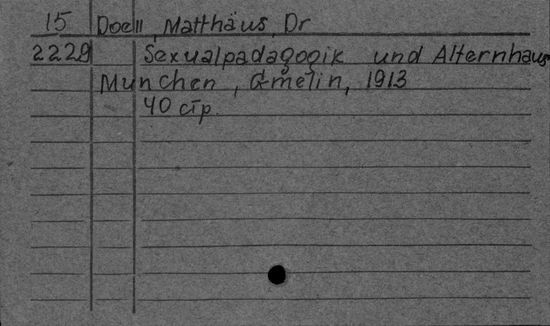 15 Doell, Matthäus, Dr
2229 Sexualpädagogik und Alternhaus
München, Gmelin, 1913
40 стр.